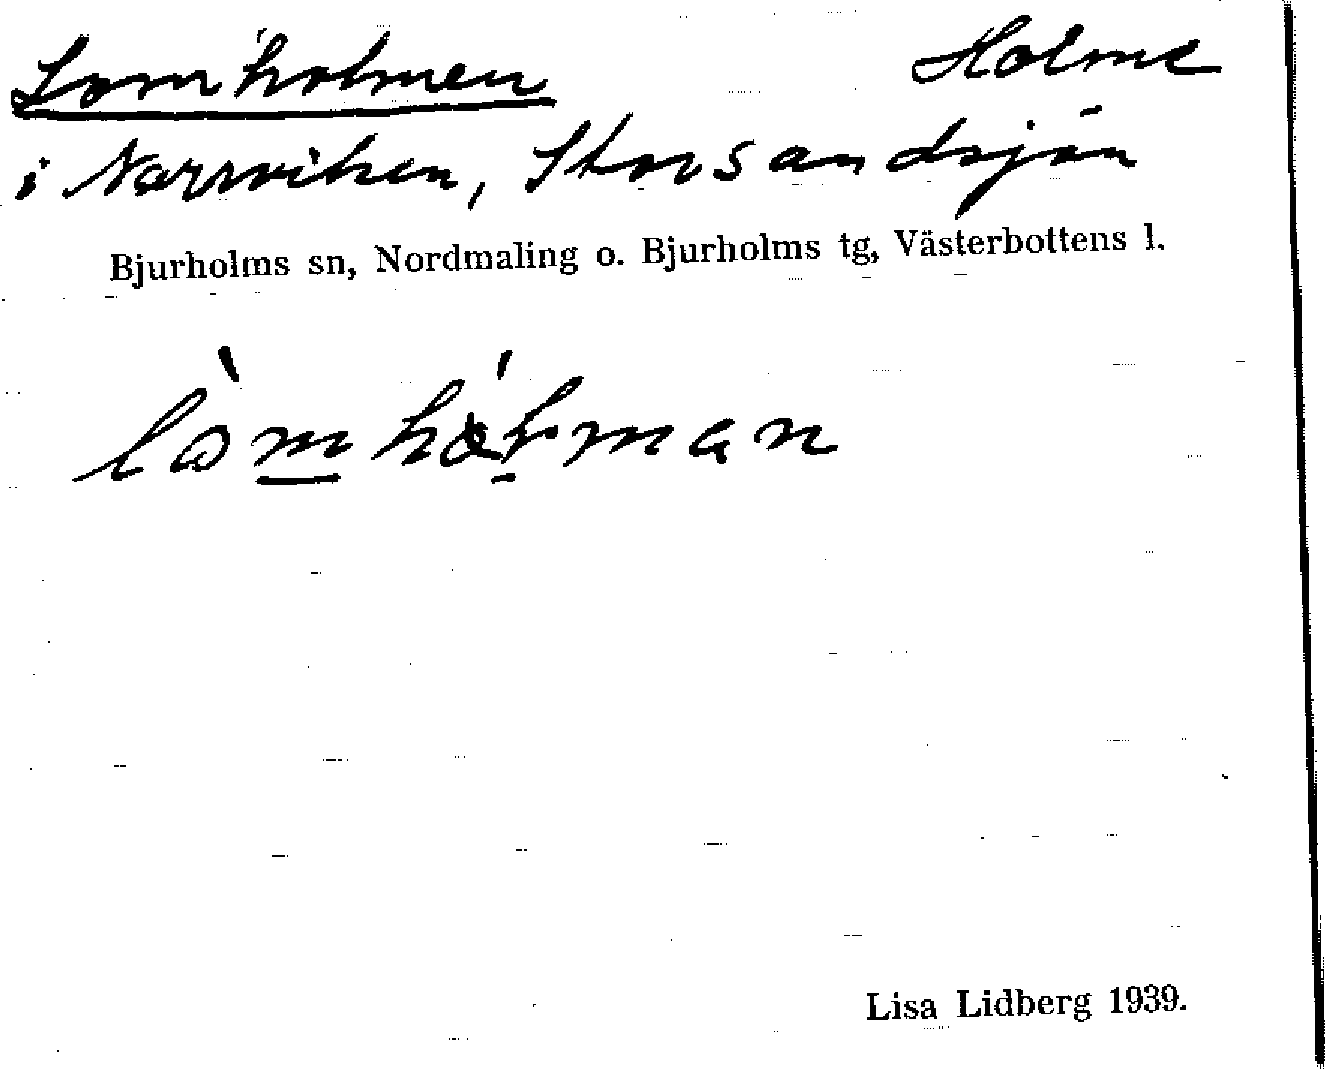 Lomholmen Holme
i Norrviken, Storsandsjön
Bjurholms sn, Nordmaling o. Bjurholms tg, Västerbottens l.
Lisa Lidberg 1939.